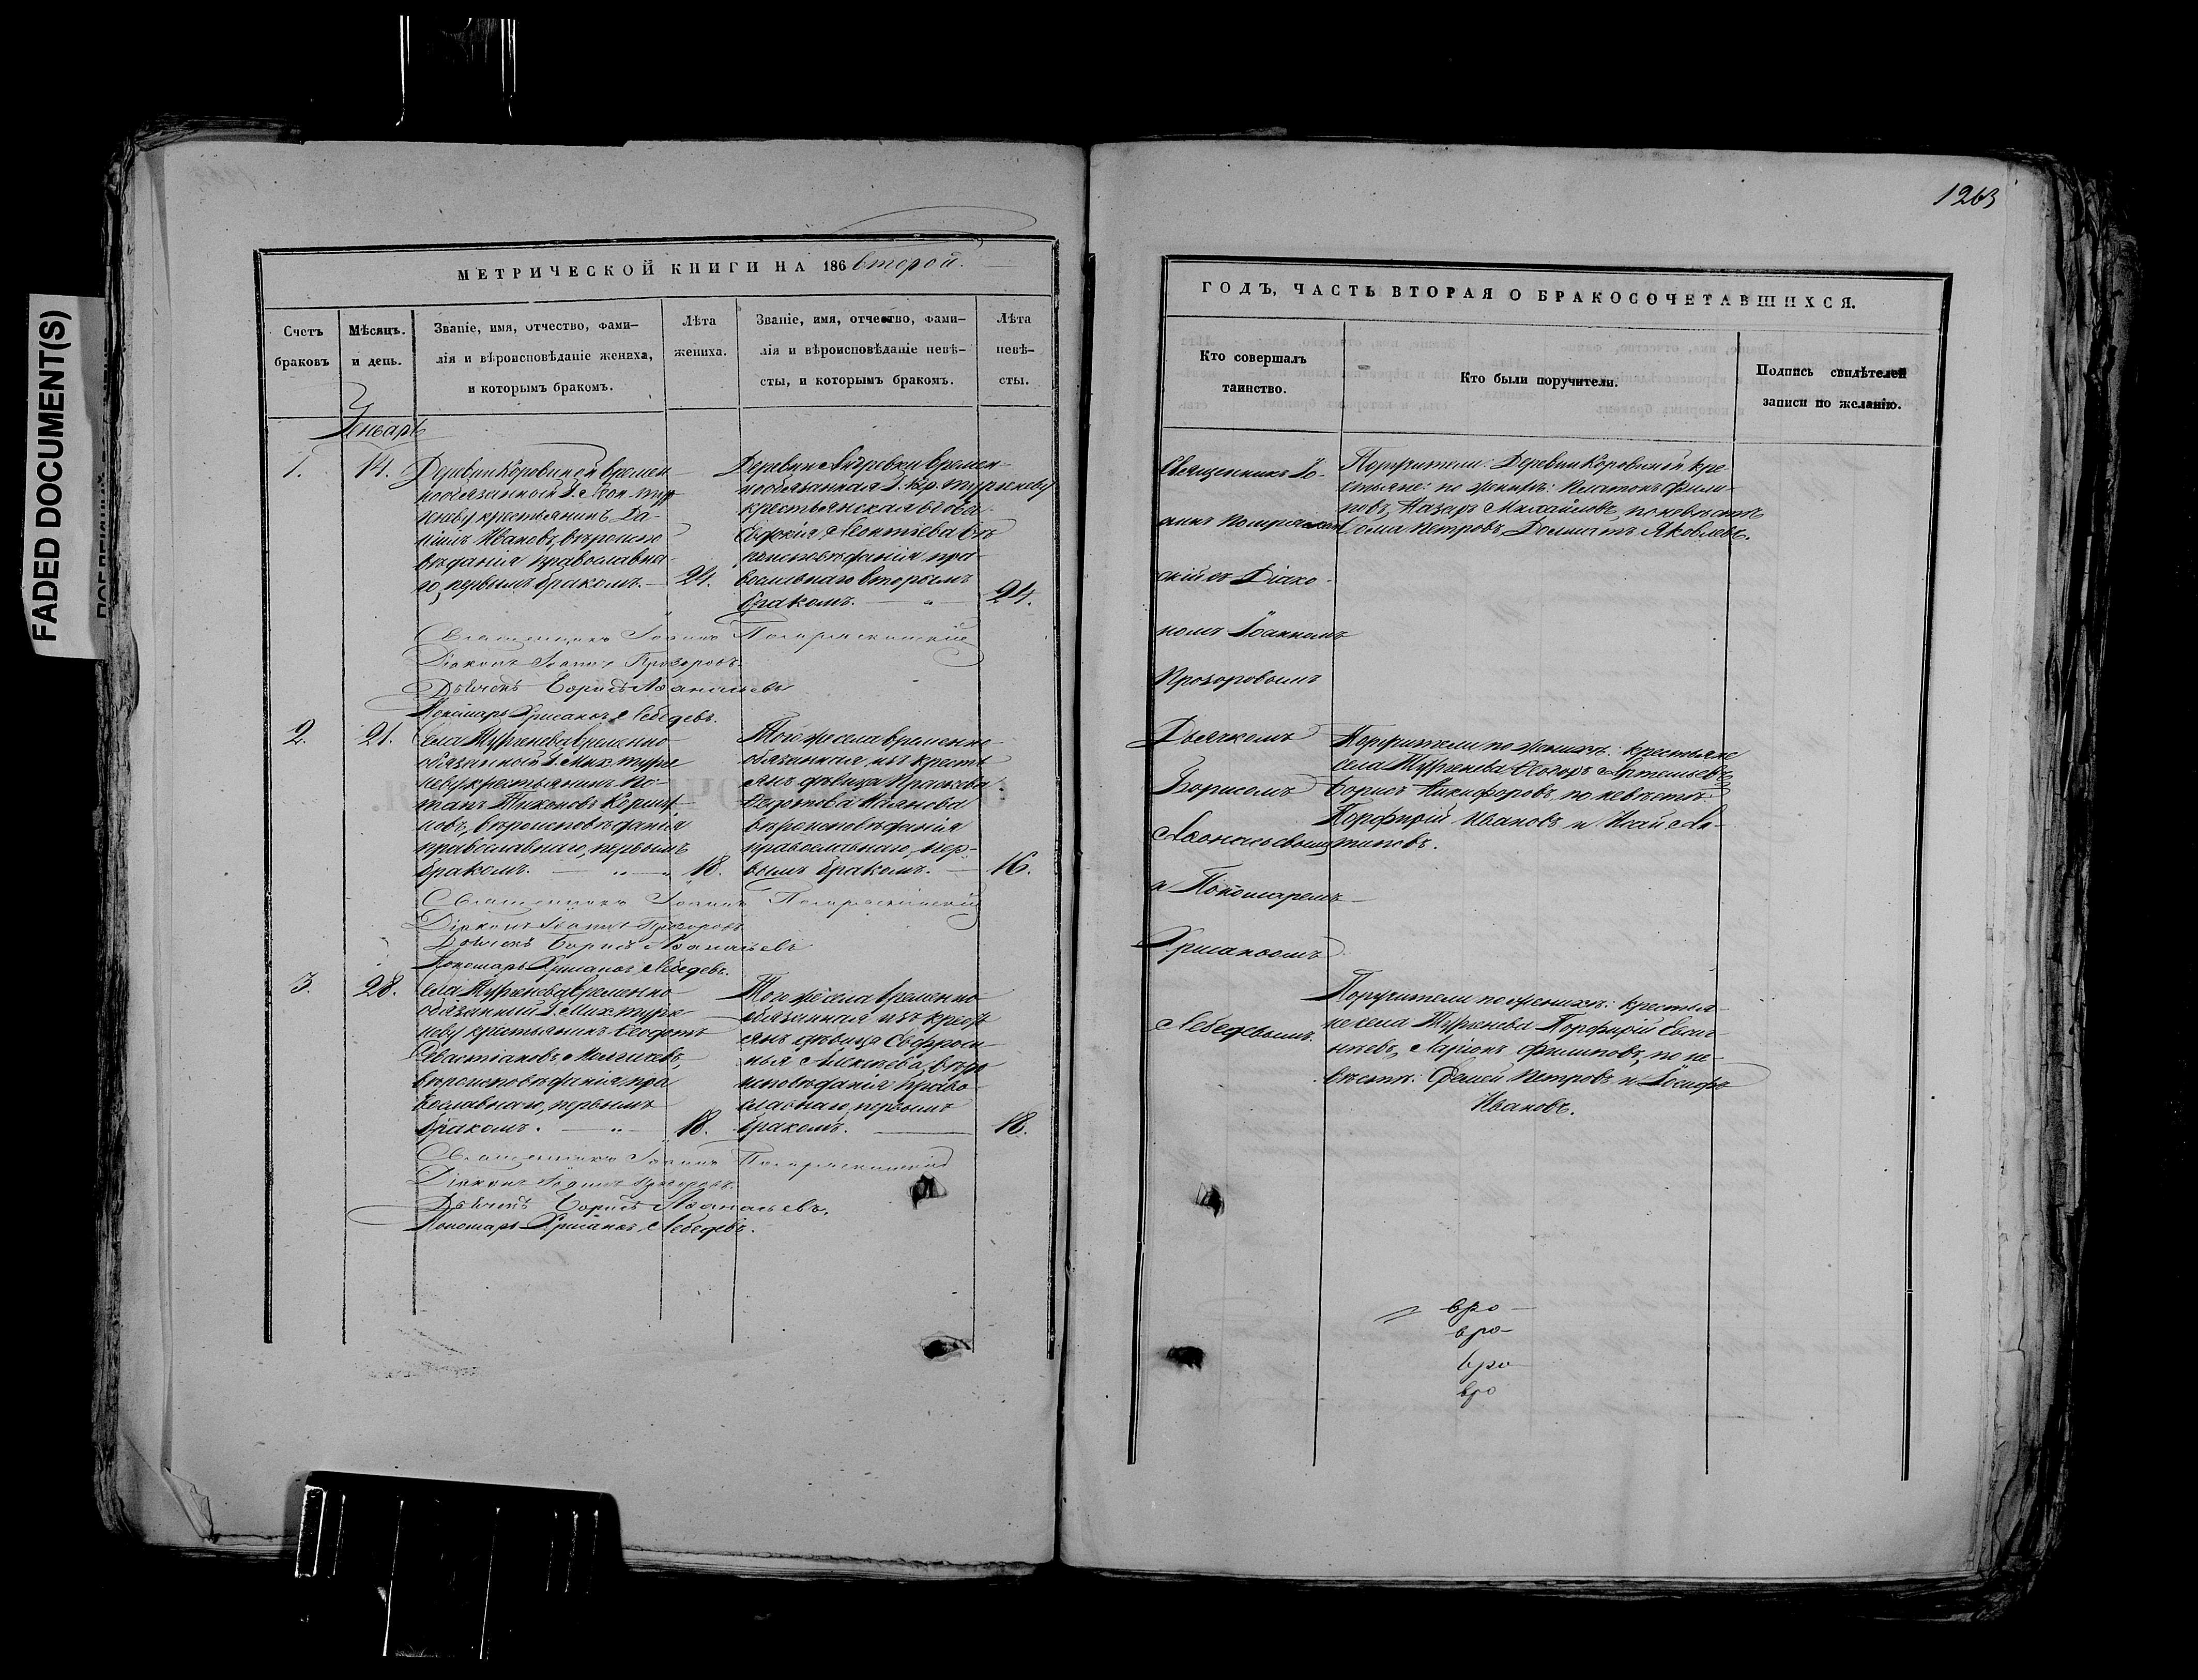 FADED DOCUMENT(S)
1263
МЕТРИЧЕСКОЙ КНИГИ НА 186 второй.
Счетъ браковъ
Мѣсяцъ. и день.
Званіе, имя, отчество, фами-
лія и вѣроисповѣданіе жениха,
и которымъ бракомъ.
Лѣта
жениха.
Званіе, имя, отчество, фами-
лія и вѣроисповѣданіе невѣ-
сты, и которымъ бракомъ.
Лѣта
невѣ-
сты.
Январь
1.
14.
Деревни Коровиной времен
нообязанный Г. Тур
геневу крестьянинъ Да-
нилъ Ивановъ, вѣроиспо
вѣданія православна-
го, первымъ бракомъ.
24.
Деревни Андреевки времен-
нообязанная Г. Тургеневу
крестьянская вдова
Евдокія Леонтіева вѣ
роисповѣданія пра-
вославнаго вторымъ
бракомъ.
24.
Священникъ Іоаннъ
Діаконъ Іоаннъ Прозоровъ.
Дьячекъ Борисъ Аѳанасьевъ
Пономарь Хрисанѳъ Лебедевъ.
2.
21.
Села Тургенева временно
обязанный Г. Мих. Турге
неву крестьянинъ По-
тапъ Тихоновъ
вѣроисповѣданія
православнаго, первымъ
бракомъ.
18.
Того же села временно
обязанная изъ кресть
янъ дѣвица
вѣроисповѣданія
православнаго, пер-
вымъ бракомъ.
16.
Священникъ Іоаннъ
Діаконъ Іоаннъ Прозоровъ
Дьячекъ Борисъ Аѳанасьевъ
Пономарь Хрисанѳъ Лебедевъ.
3.
28.
Села Тургенева временно
обязанный Г. Мих. Турге
неву крестьянинъ Ѳеодотъ
вѣроисповѣданія пра
вославнаго, первымъ
бракомъ.
18.
Того же села временно
обязанная изъ кресть
янъ дѣвица Евфроси
нья Алексѣева, вѣро
исповѣданія право-
славнаго, первымъ
бракомъ.
18.
Священникъ Іоаннъ
Діаконъ Іоаннъ Прозоровъ.
Дьячекъ Борисъ Аѳанасьевъ.
Пономарь Хрисанѳъ Лебедевъ.
ГОДЪ, ЧАСТЬ ВТОРАЯ О БРАКОСОЧЕТАВШИХСЯ.
Кто совершалъ
таинство.
Кто были поручители.
Подпись свидѣтелей
записи по желанію.
Священникъ Іо-
аннъ
скій съ Діако-
номъ Іоанномъ
Прозоровымъ
Дьячкомъ
Борисомъ
Аѳанасьевымъ
и Пономаремъ
Хрисанѳомъ
Лебедевымъ.
Поручители: Деревни Коровиной кре-
стьяне: по женихѣ: Платонъ Фили-
повъ, Назаръ Михайловъ, по невѣстѣ
Петровъ, Яковлевъ.
Поручители по женихѣ: крестьяне
села Тургенева Ѳеодоръ Артемьевъ,
Борисъ Никифоровъ, по невѣстѣ:
Порфирій Ивановъ и Исай Ан-
типовъ.
Поручители по женихѣ: крестья-
не села Тургенева Порфирій
Ларіонъ Филиповъ, по не-
вѣстѣ: Петровъ и Іосифъ
Ивановъ.